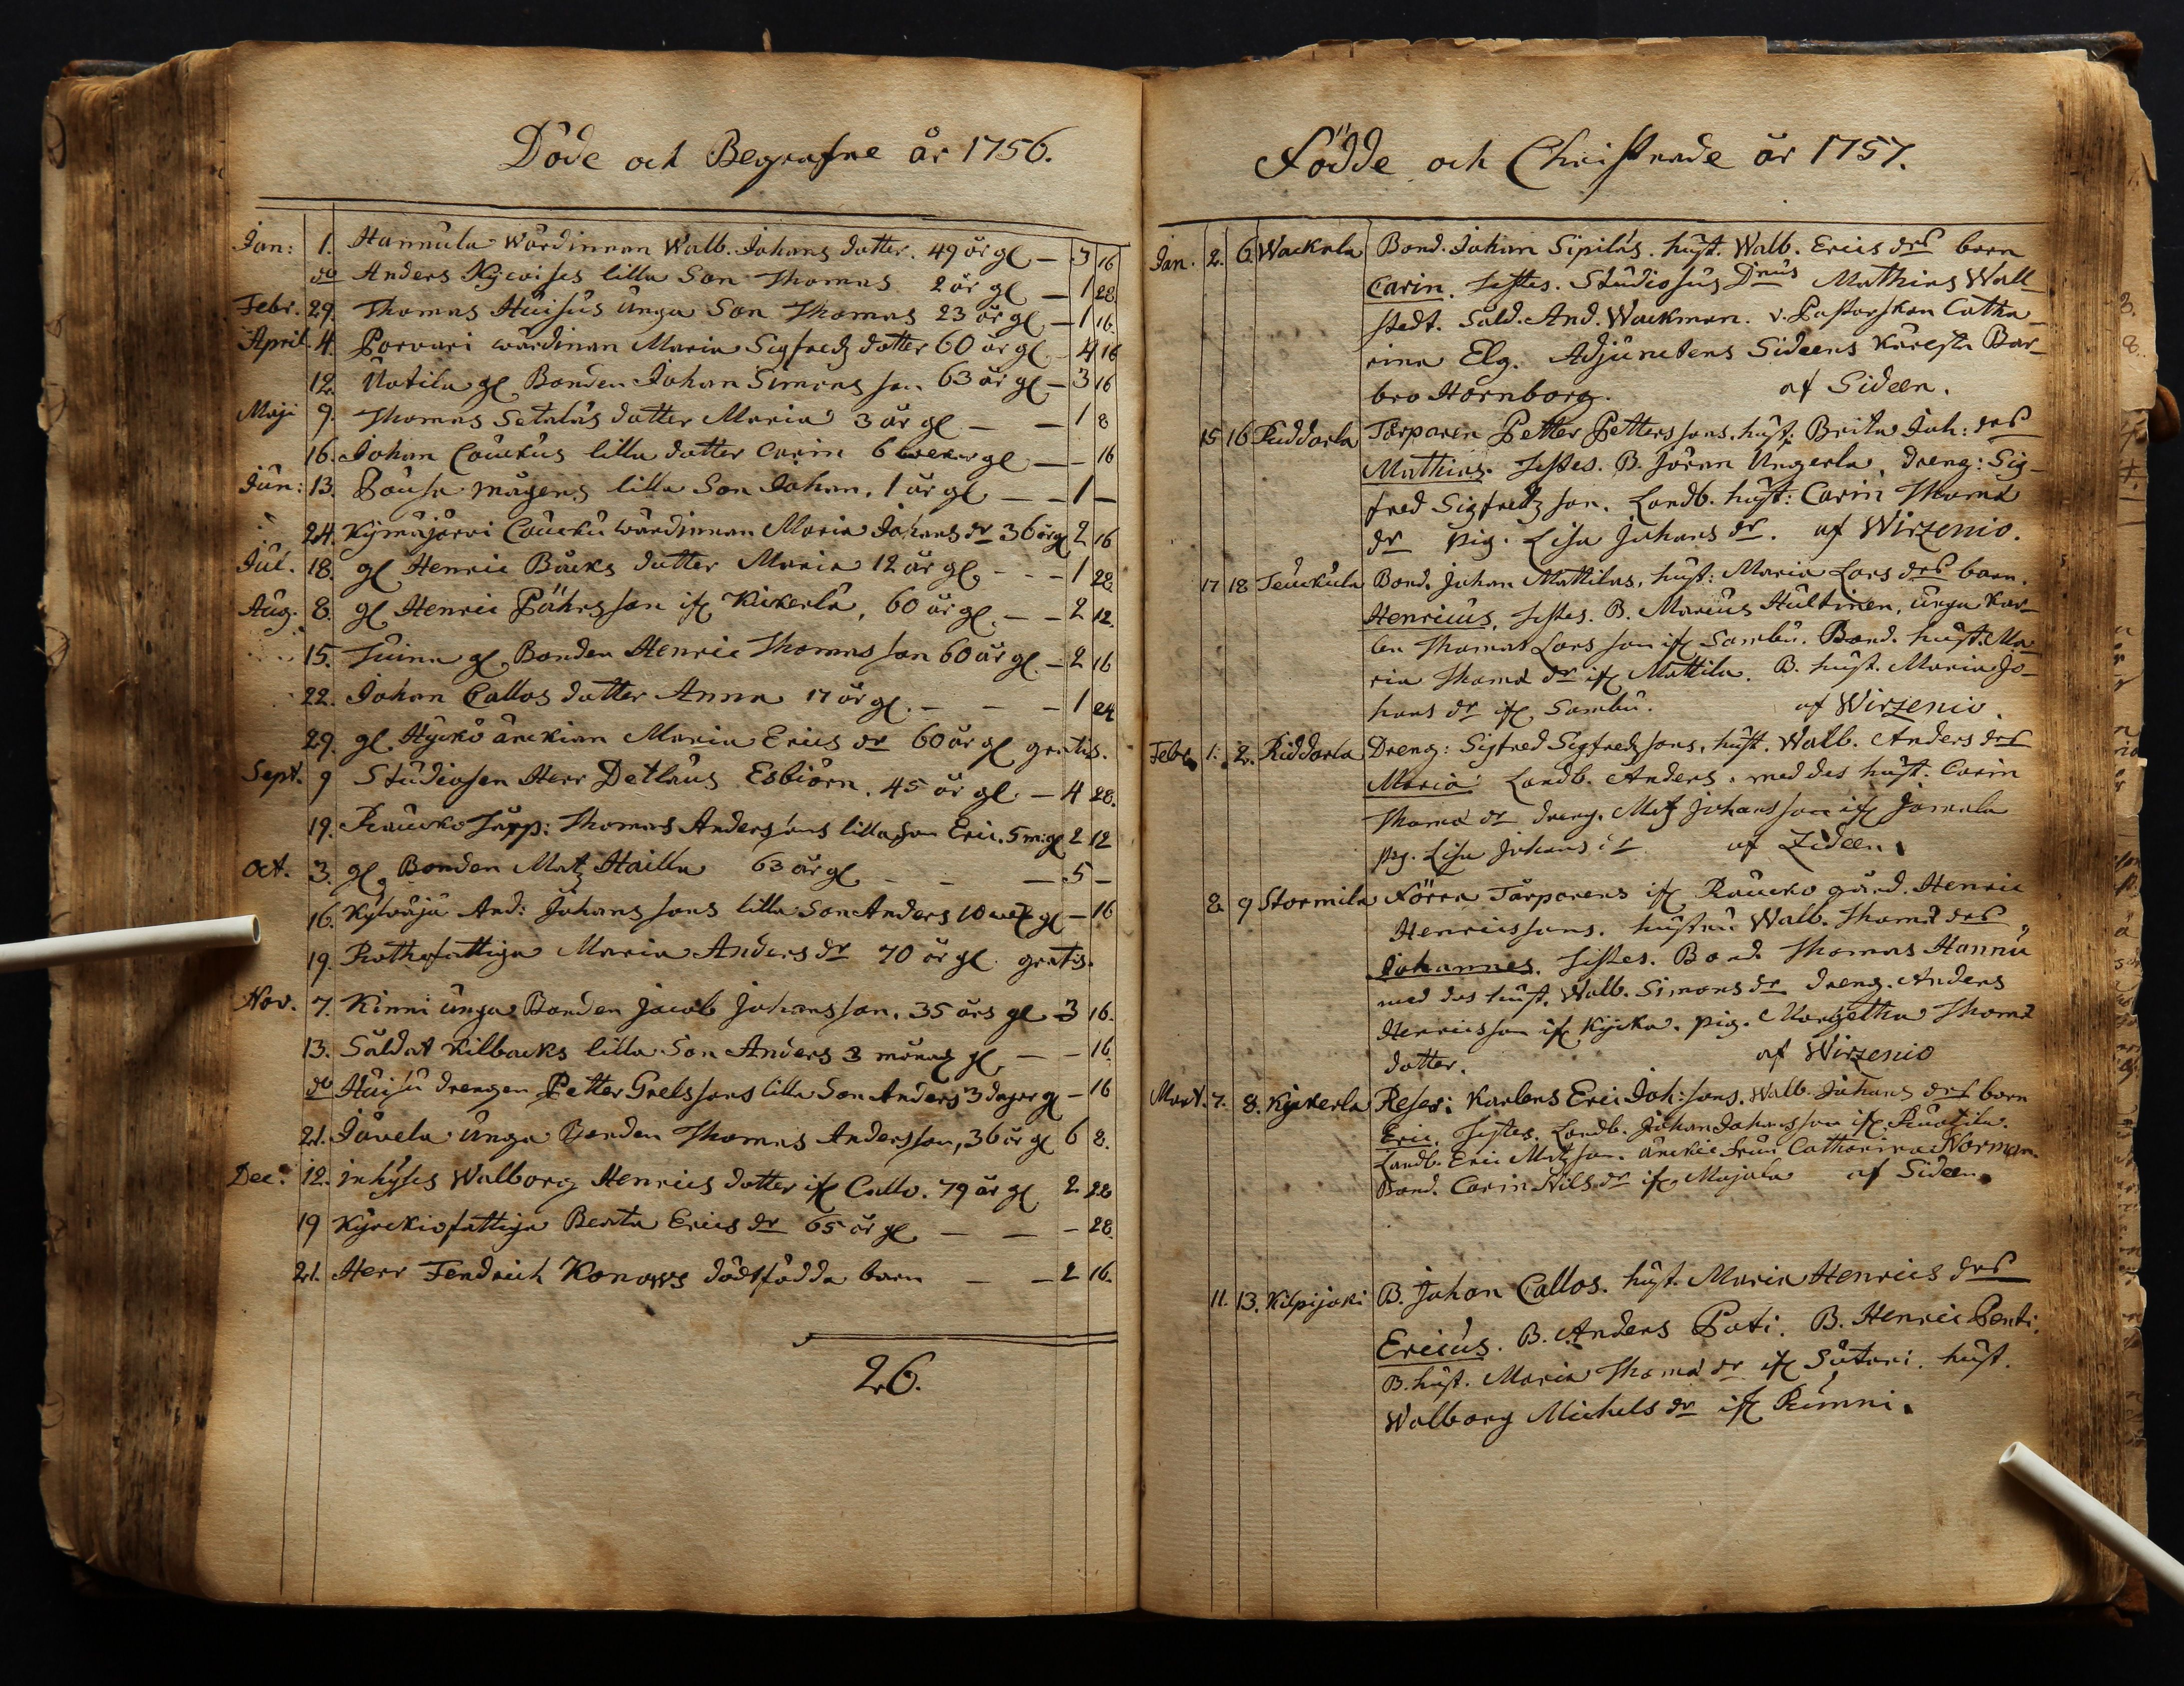 Döde och Begrafne år 1756.
Jan: 1. Hannula Wärdinnan Walb. Johans dotter. 49 år gl — 3 16
do Anders lilla Son Thomas 2 år gl — 1 28
Febr. 29. Thomas Huisus unga Son Thomas 23 år gl — 1 16
April. 4. Porvari wärdinan Maria Sigfredz dotter 60 år gl — 4 16
12. gl Bonden Johan Simons son 63 år gl — 3 16
Maji 9. Thomas Setalas dotter Maria 3 år gl — — 1 8
16. Johan Couckus lilla dotter Carin 6 wekor gl — — 16
Jun: 13. Pousa mågens lilla Son Johan. 1 år gl — — 1 —
24. Kymäjärvi Coucku wärdinnan Maria Johans dr 36 år gl 2 16
Jul. 18. gl Henric Bäcks dotter Maria 12 år gl — — 1 28
Aug. 8. gl Henric Påhrsson ifr Kickerlä, 60 år gl. — — 2 12.
15. gl Bonden Henric Thomas son 60 år gl — 2 16
22. Johan Callos dotter Anna 17 år gl. — — — 1 24
29. gl Hyckö änckian Maria Erics dr 60 år gl gratis.
Sept. 9 Studiosen Herr Detlaus Esbiörn. 45 år gl — 4 28.
19. Raucko Thomas Anders sons lilla son Eric. 5 m: gl 2 12
Oct. 3. gl Bonden Matz Hailla 63 år gl — — — 5 —
16. Kylväjä And: Johans sons lilla Son Anders 10 gl — 16
19. Rothefattiga Maria Anders dr 70 år gl. gratis.
Nov. 7. Kinni unga Bonden Jacob Johansson. 35 års gl — 3 16.
13. Soldat Kilbacks lilla Son Anders 3 månad gl — — 16.
do Huisu drengen Petter Grelssons lilla Son Anders 3 dagar gl — 16
21. Jävelä unga Bonden Thomas Andersson, 36 år gl 6 8.
Dec: 12. inhyses Walborg Henrics dotter ifr Callo. 79 år gl 2 28
19 Kyrckiofattiga Beata Erics dr 65 år gl — — — 28.
21. Herr Fendrich Konows dödfödda barn — — 2 16.
26.
Födde och Christnade år 1757.
Jan. 2. 6. Wackerla Bond. Johan Sipiläs. hust. Walb. Erics drs barn
Carin. Testes. Studiosus Dnus Mathias Wall
stedt. Sold. And. Wackman. v. Pastorskan Catha
rina Elg. Adjunctens Sideens käresta Bar_
bro Hornborg. af Sideen.
15 16 Ruddarla Torparen Petter Petterssons. hust. Brita Joh: drs
Mathias. Testes. B. Jöran Ungerla, dreng: Sig_
fred Sigfredz son. Landb. hust: Carin Thomæ
dr pig. Lisa Johans dr. af Wirzenio.
17 18 Teuckula Bond. Johan Mattilas, hust: Maria Lars drs barn.
Henricus, Testes. B. Marcus Hultinen, unga Kar_
len Thomas Lars son ifr Sambu. Bond. hust. Ma_
ria Thomæ dr ifr Mattila. B. hust. Maria Jo_
hans dr ifr Sambu. af Wirzenio.
Febr. 1. 2. Ruddarla Dreng: Sigfred Sigfredz sons, hust. Walb. Anders drs
Maria Landb. Anders. med des hust. Carin
Thomæ dr dreng. Matz Johansson ifr Jamala
pig. Lisa Johans dr af Zideen.
8. 9 Stormila Förra Torparens ifr Raucko gård. Henric
Henricssons. hustru Walb. Thomæ drs
Johannes. Testes. Bond. Thomas Hannu
med des hust. Walb. Simons dr dreng. Anders
Henricsson ifr Kycka. pig. Margetha Thomæ
dotter. af Wirzenio
Mart. 7. 8. Kyckerla Reserv: Karlens Eric Joh: sons. Walb. Johans drs barn
Eric. Testes. Landb. Johan Johansson ifr Ruotila.
Landb. Eric Matzson. änckie fru Catharina Norman.
Bond. Carin Nils dr ifr Majala af Sideen.
11. 13. Kilpijoki B. Johan Callos. hust. Maria Henrics drs
Ericus. B. Anders Pati. B. Henric Penti.
B. hust. Maria Thomæ dr ifr Sätari. hust.
Walborg Michels dr ifr Rimni.